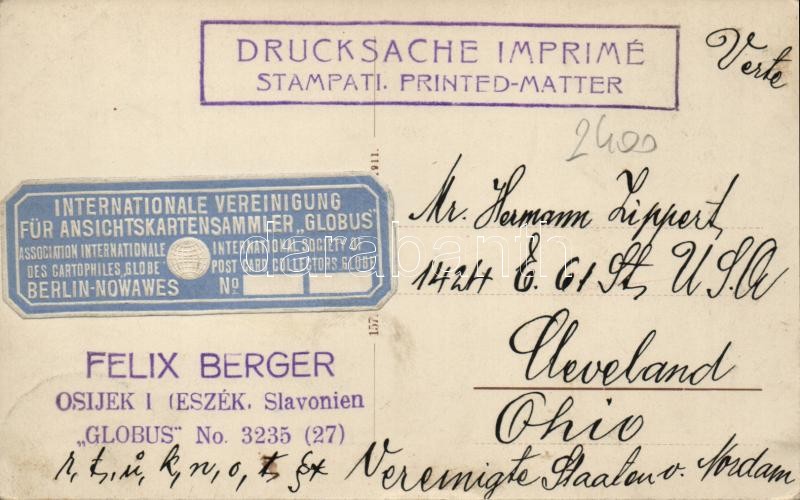 DRUCKSACHE IMPRIMÉ
STAMPATI. PRINTED-MATTER
Verte
2400
911.
INTERNATIONALE VEREINIGUNG
FÜR ANSICHTSKARTENSAMMLER „GLOBUS"
ASSOCIATION INTERNATIONALE
DES CARTOPHILES, GLOBE
INTERNATIONAL SOCIETY OF
POST CARD COLLECTORS GLOBE
BERLIN-NOWAWES
No
darabanth
Mr. Hermann Lippert,
1424 E. 61 St, U.S.A
Cleveland
Ohio
Vereinigte Staaten v. Nordam
157.
FELIX BERGER
OSIJEK I (ESZÉK, Slavonien
„GLOBUS" No. 3235 (27)
r, t, u, k, n, o, t,